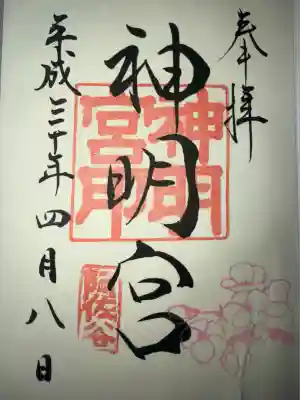 奉拝
神明宮
神明宮印
阿佐谷
平成三十年四月八日